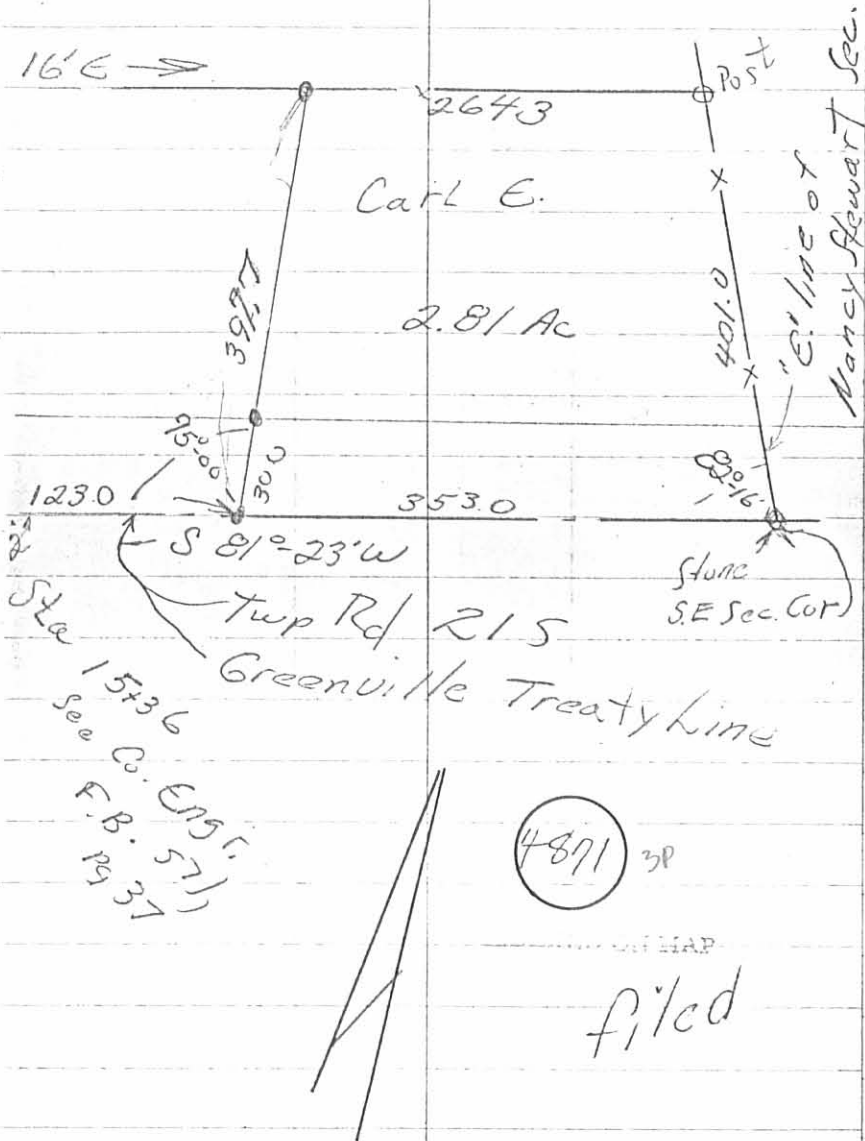 16' E
Post
2643
Carl E.
2.81 Ac
401.0
"E." line of
Nancy Stewart Sec.
75°-00'
300
82°-16'
123.0
353.0
S 81°-23' W
Stone
S.E Sec. Cor
Twp Rd 215
Greenville Treaty Line
Sta 15+36
See Co. Engr.
F.B. 57
Pg 37
4871
3P
MAP
filed